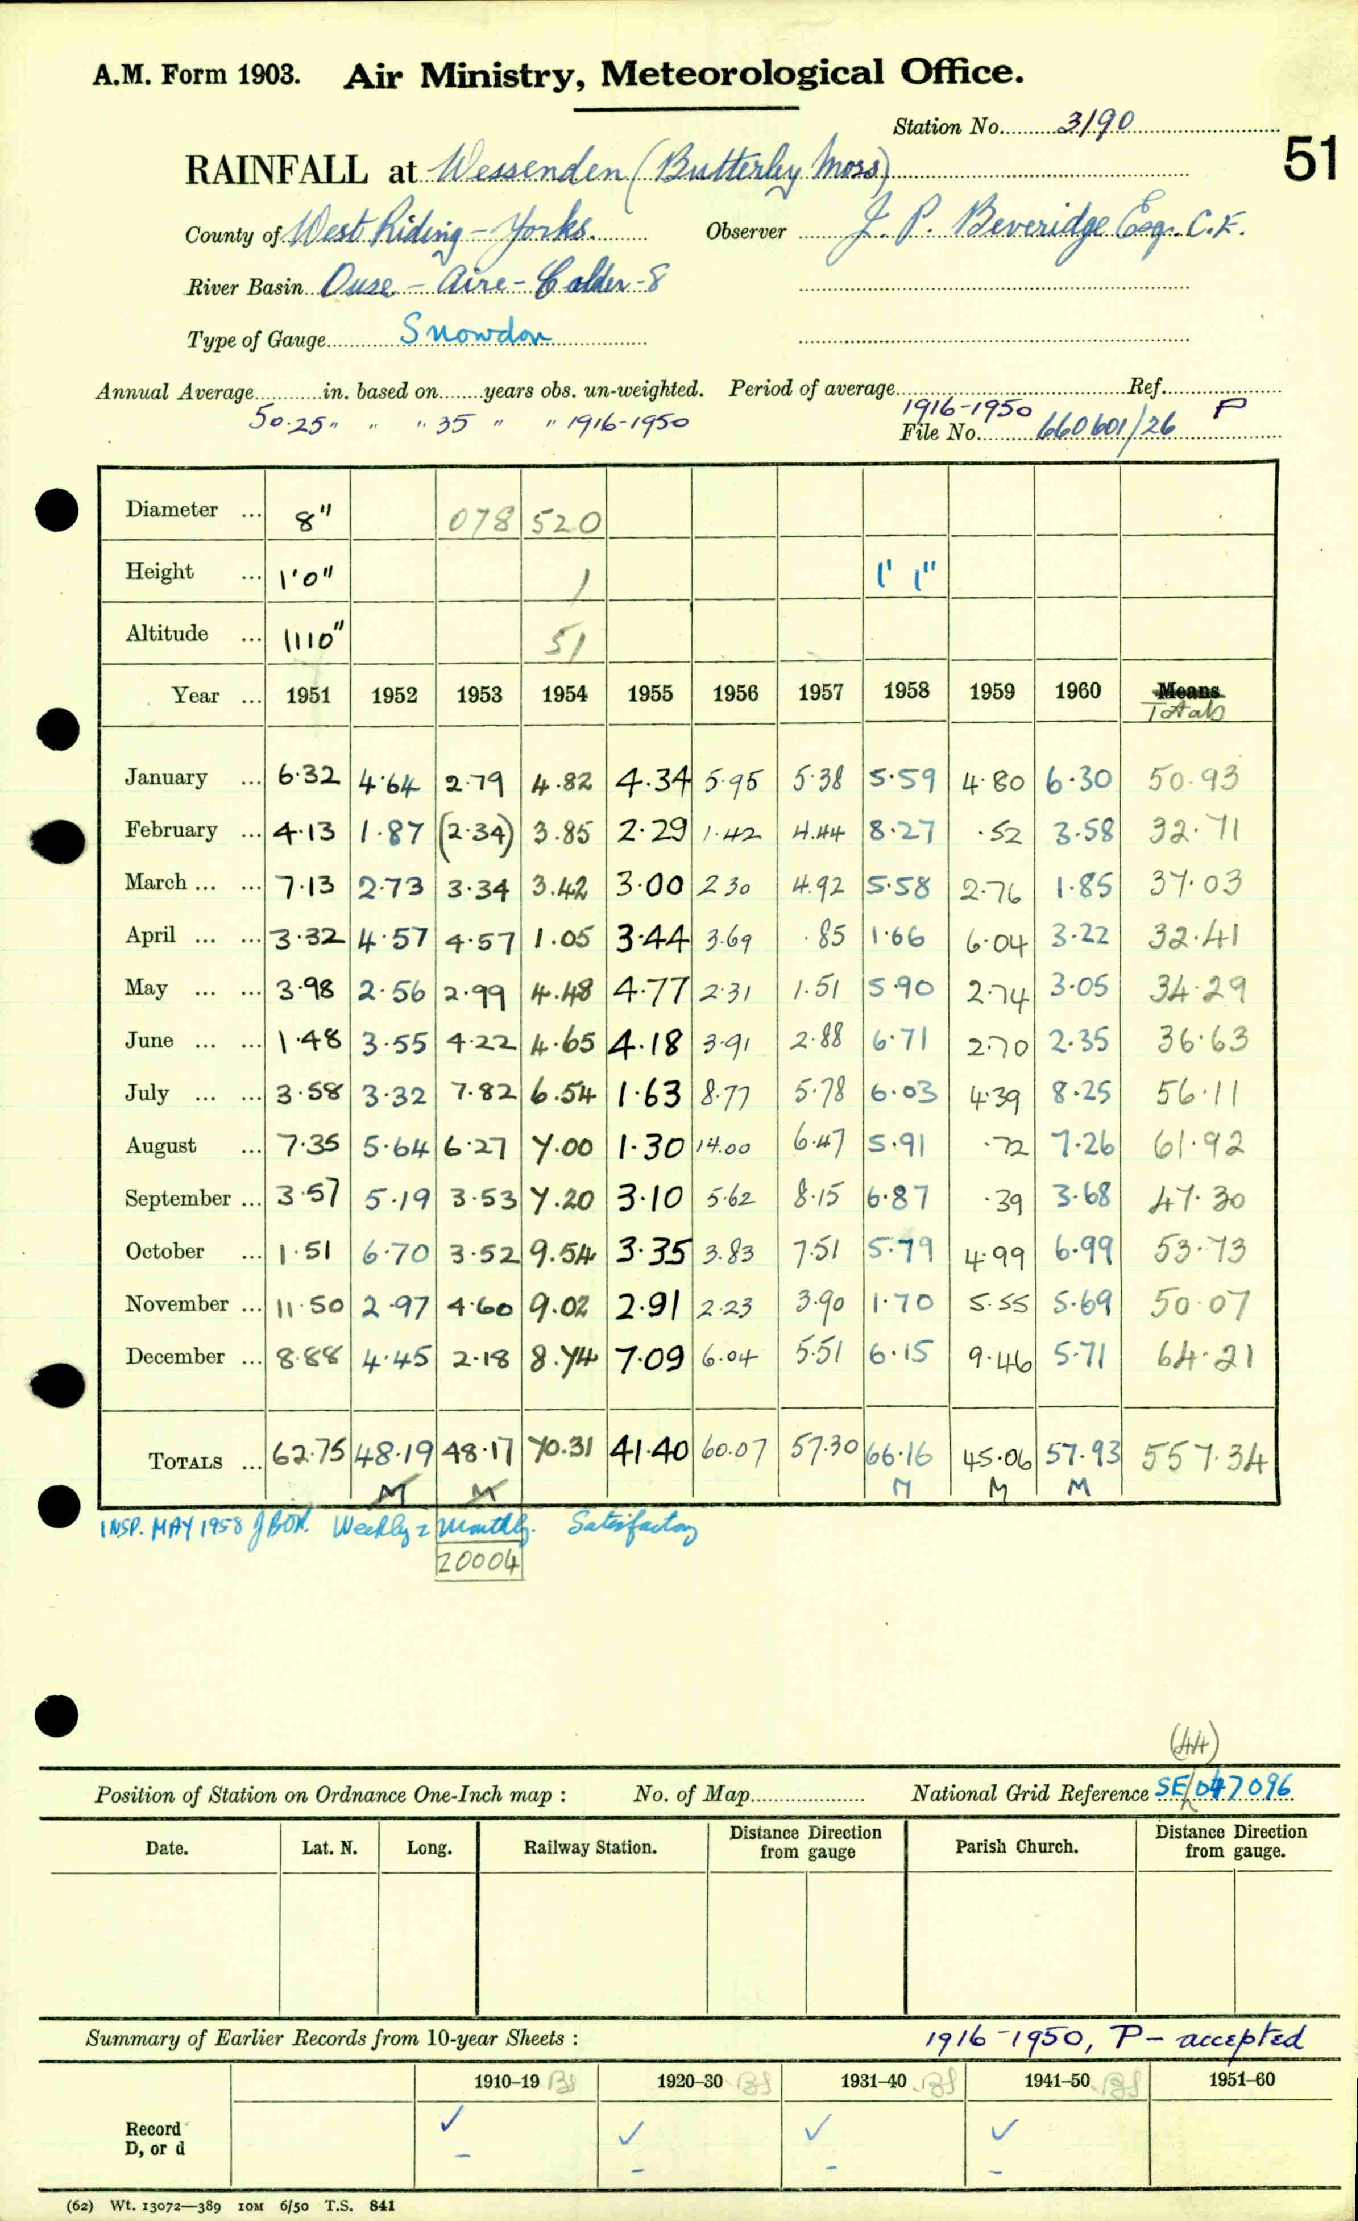 A.M. Form 1903. Air Ministry, Meteorological Office.
Station No. 3190
51
RAINFALL at Wessenden (Butterley Moss)
County of West Riding - Yorks. Observer J. P. Beveridge Esq. C.E.
River Basin Ouse - Aire - Calder - 8
Type of Gauge Snowdon
Annual Average in. based on years obs. un-weighted. Period of average Ref.
50.25 " " " 35 " " 1916-1950 1916-1950 P
File No. 660601/26
Diameter ... 8" 078 520
Height ... 1'0" 1 1' 1"
Altitude ... 1110" 51
Year ... 1951 1952 1953 1954 1955 1956 1957 1958 1959 1960 Means
Totals
January ... 6.32 4.64 2.79 4.82 4.34 5.95 5.38 5.59 4.80 6.30 50.93
February ... 4.13 1.87 (2.34) 3.85 2.29 1.42 4.44 8.27 .52 3.58 32.71
March ... ... 7.13 2.73 3.34 3.42 3.00 2 30 4.92 5.58 2.76 1.85 37.03
April ... ... 3.32 4.57 4.57 1.05 3.44 3.69 .85 1.66 6.04 3.22 32.41
May ... ... 3.98 2.56 2.99 4.48 4.77 2.31 1.51 5.90 2.74 3.05 34.29
June ... ... 1.48 3.55 4.22 4.65 4.18 3.91 2.88 6.71 2.70 2.35 36.63
July ... ... 3.58 3.32 7.82 6.54 1.63 8.77 5.78 6.03 4.39 8.25 56.11
August ... 7.35 5.64 6.27 7.00 1.30 14.00 6.47 5.91 .72 7.26 61.92
September ... 3.57 5.19 3.53 7.20 3.10 5.62 8.15 6.87 .39 3.68 47.30
October ... 1.51 6.70 3.52 9.54 3.35 3.83 7.51 5.79 4.99 6.99 53.73
November ... 11.50 2.97 4.60 9.02 2.91 2.23 3.90 1.70 5.55 5.69 50.07
December ... 8.88 4.45 2.18 8.74 7.09 6.04 5.51 6.15 9.46 5.71 64.21
TOTALS ... 62.75 48.19 48.17 70.31 41.40 60.07 57.30 66.16 45.06 57.93 557.34
M M M M M
INSP. MAY 1958 Weekly & Monthly. Satisfactory
20004
(44)
Position of Station on Ordnance One-Inch map : No. of Map National Grid Reference SE/047096
Date. Lat. N. Long. Railway Station. Distance Direction from gauge Parish Church. Distance Direction from gauge.
Summary of Earlier Records from 10-year Sheets : 1916-1950, P - accepted
1910-19 1920-30 1931-40 1941-50 1951-60
Record ✓ ✓ ✓ ✓
D, or d - - - -
(62) Wt. 13072—389 10M 6/50 T.S. 841